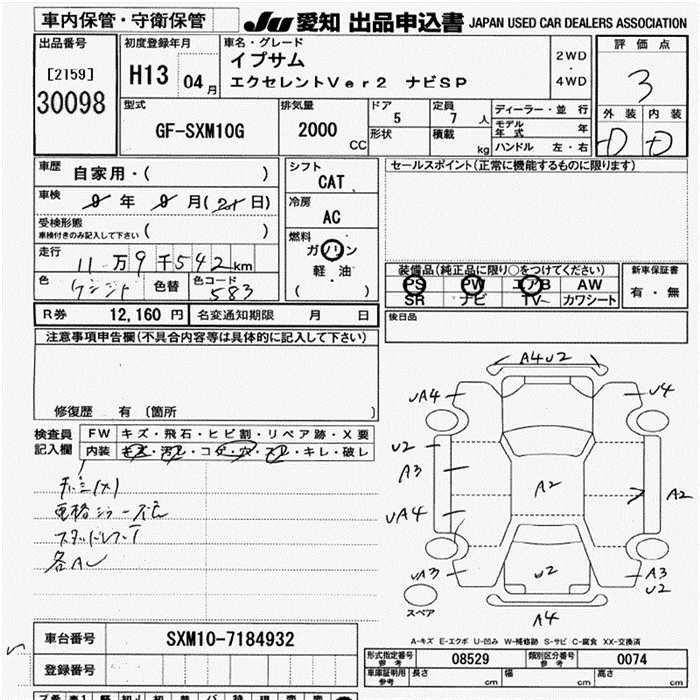 車内保管・守衛保管
JU 愛知 出品申込書 JAPAN USED CAR DEALERS ASSOCIATION
出品番号
[2159]
30098
初度登録年月
H13 04月
車名・グレード
イプサム
エクセレントVer2 ナビSP
2WD
・
4WD
評価点
3
外装 内装
D D
型式
GF-SXM10G
排気量
2000 CC
ドア
5
形状
定員
7 人
積載 kg
ディーラー・並行
モデル年式 年
ハンドル 左・右
車歴
自家用・( )
車検
9年 9月(21日)
受検形態
車検付きのみ記入して下さい ( )
走行
11万9千542km
色 色替 色コード
583
シフト
CAT
冷房
AC
燃料
ガソリン
軽・油
( )
セールスポイント(正常に機能するものに限ります)
装備品(純正品に限り○をつけてください)
PS PW エアB AW
SR ナビ TV カワシート
新車保証書
有・無
後日品
R券 12,160円 名変通知期限 月 日
注意事項申告欄(不具合内容等は具体的に記入して下さい)
修復歴 有 〔箇所 〕
検査員記入欄
FW キズ・飛石・ヒビ割・リペア跡・X要
内装 キズ・汚レ・コゲ・穴・スレ・キレ・破レ
A4U2
UA4
U4
U2
A3
A2
A2
UA4
UA3
U2
A3
U2
A4
スペア
A-キズ E-エクボ U-凹み W-補修跡 S-サビ C-腐食 XX-交換済
車台番号 SXM10-7184932
登録番号
形式指定番号 参考 08529 類別区分番号 参考 0074
車庫証明用 参考 長さ cm 幅 cm 高さ cm